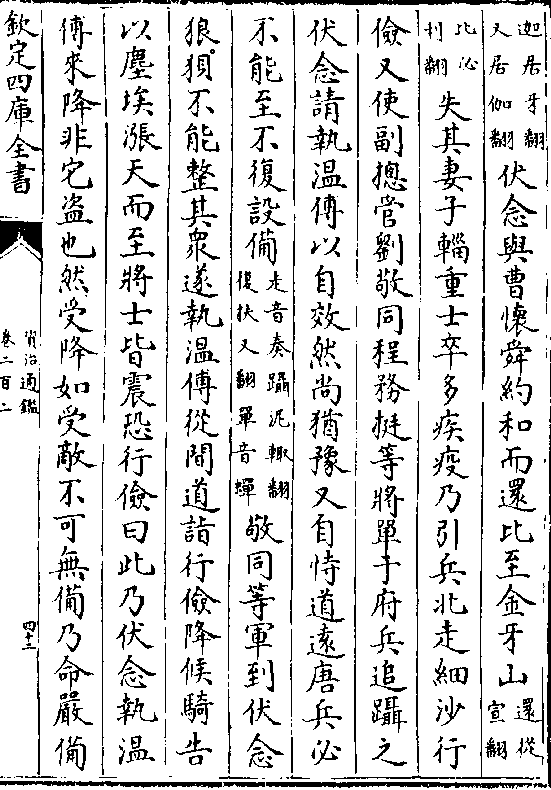 迦居牙翻
又居伽翻
伏念與曹懷舜約和而還比至金牙山
還從
宣翻
比必
利翻
失其妻子輜重士卒多疾疫乃引兵北走細沙行
儉又使副摠管劉敬同程務挺等將單于府兵追躡之
伏念請執温傅以自效然尚猶豫又自恃道遠唐兵必
不能至不復設備
走音奏躡泥輒翻
復扶又翻單音蟬
敬同等軍到伏念
狼狽不能整其衆遂執温傅從間道詣行儉降候騎告
以塵埃漲天而至將士皆震恐行儉曰此乃伏念執温
傅來降非它盗也然受降如受敵不可無備乃命嚴備
欽定四庫全書
資治通鑑
卷二百二
四十三